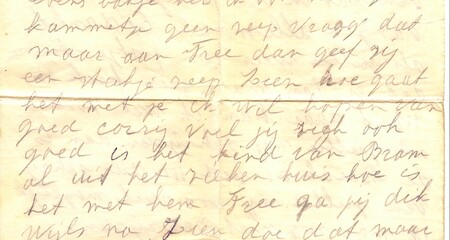 kammetje geen reep vraag dat
maar aan Tree dan geef zij
een stukje reep Sien hoe gaat
het met je ik wil hoppen van
goed corrij voel jij zigh ook
goed is het kind van Bram
al uit het zieken huis hoe is
het met hem Tree ga jij dik
wijls na Sien doe dat maar